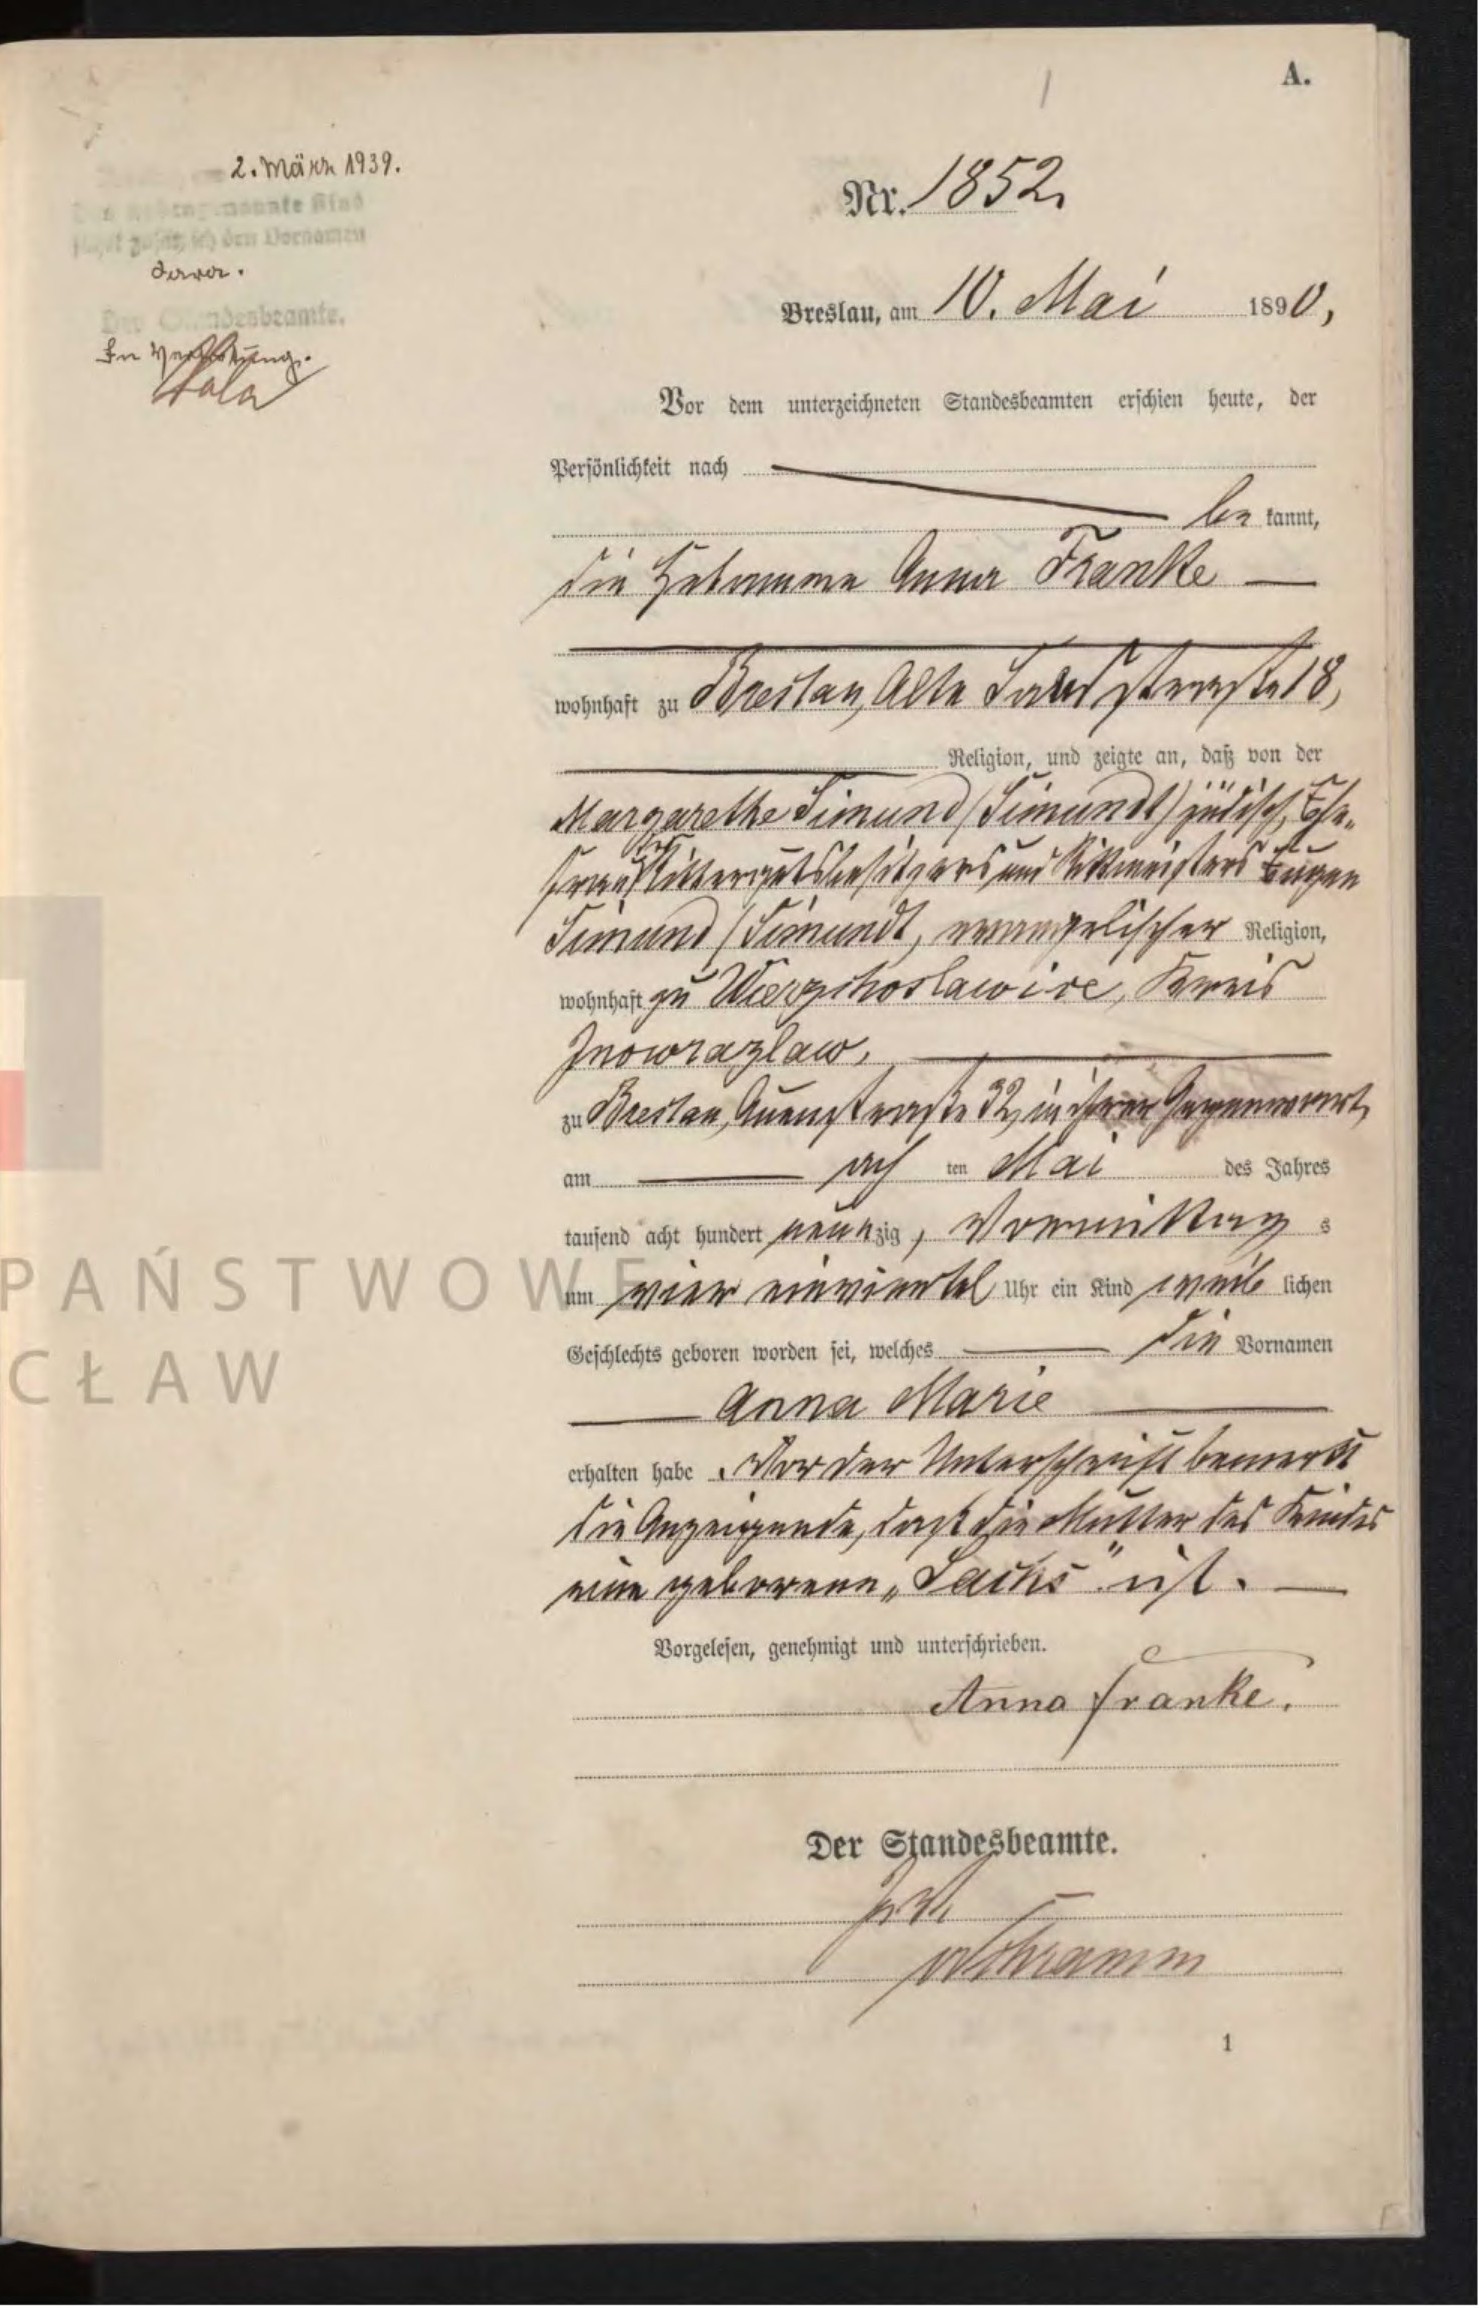 A.
2. März 1939.
nebengenannte Kind
zusätzlich den Vornamen
Sara.
Der Standesbeamte.
In Vertretung.
Nr. 1852.
Breslau, am 10. Mai 1890,
Vor dem unterzeichneten Standesbeamten erschien heute, der
Persönlichkeit nach
be kannt,
die Hebamme Anna Franke
wohnhaft zu Breslau, Alte 18,
Religion, und zeigte an, daß von der
Margarethe Simund (Simundt) jüdisch, Ehe-
frau des Rittergutsbesitzers und Rittmeisters Eugen
Simund (Simundt, evangelischer Religion,
wohnhaft zu Wierzchoslawice, Kreis
Inowrazlaw,
zu Breslau, Auenstraße 32, in ihrer Gegenwart,
am ach ten Mai des Jahres
tausend acht hundert neunzig, Vormittag s
um vier einviertel Uhr ein Kind weib lichen
Geschlechts geboren worden sei, welches die Vornamen
Anna Marie
erhalten habe. Vor der Unterschrift bemerkt
die Anzeigende, daß die Mutter des Kindes
eine geborene „Sachs" ist.
Vorgelesen, genehmigt und unterschrieben.
Anna Franke.
Der Standesbeamte.
In Vertr.
Schramm
1
PAŃSTWOWE
CŁAW